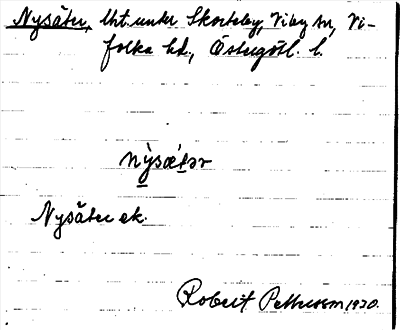 Nysäter, lht. under Skorteby, Viby sn, Vi-
folka hd., Östergötl. l.
nỳsæ´tər
Nysäter ek.
Robert Pettersson 1930.